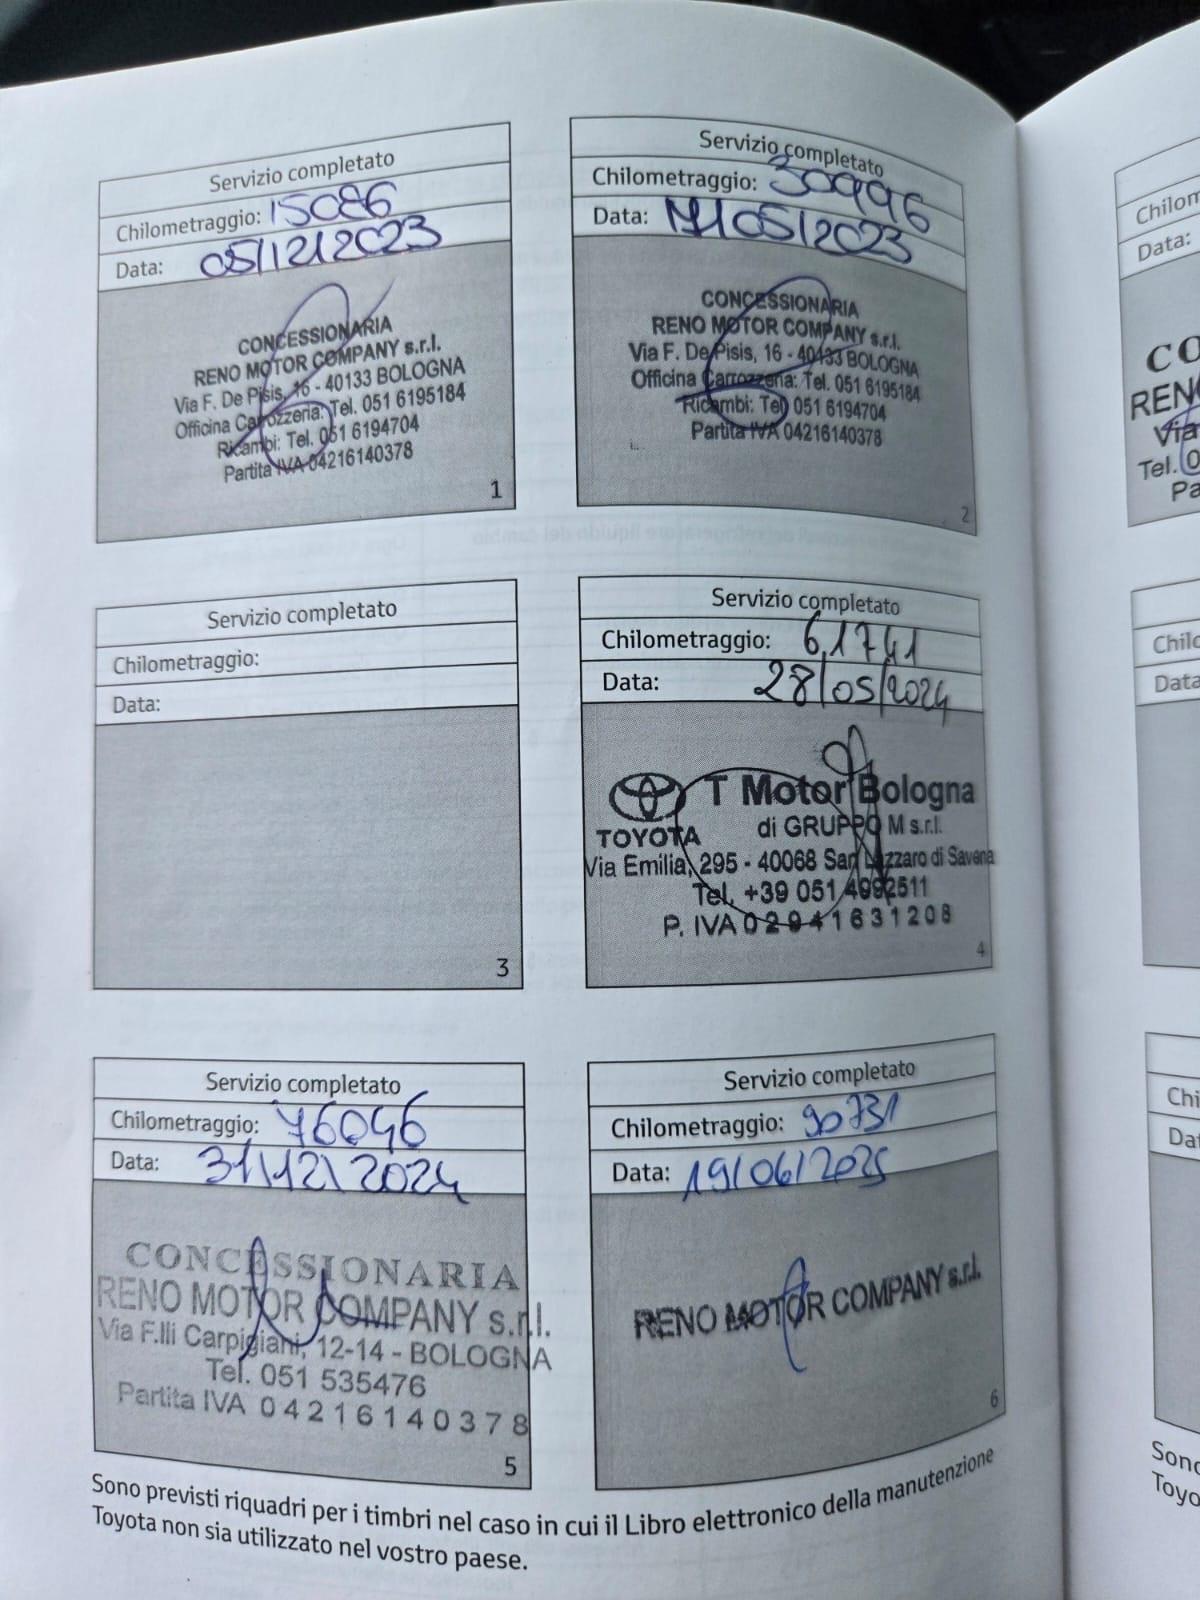 Servizio completato
Chilometraggio: 15086
Data: 05/12/2023
CONCESSIONARIA
RENO MOTOR COMPANY s.r.l.
Via F. De Pisis, 16 - 40133 BOLOGNA
Officina Carrozzeria: Tel. 051 6195184
Ricambi: Tel. 051 6194704
Partita IVA 04216140378
1
Servizio completato
Chilometraggio: 30996
Data: /05/2023
CONCESSIONARIA
RENO MOTOR COMPANY s.r.l.
Via F. De Pisis, 16 - 40133 BOLOGNA
Officina Carrozzeria: Tel. 051 6195184
Ricambi: Tel 051 6194704
Partita IVA 04216140378
2
Servizio completato
Chilometraggio:
Data:
3
Servizio completato
Chilometraggio: 61741
Data: 28/05/2024
TOYOTA
T Motor Bologna
di GRUPPO M s.r.l.
Via Emilia, 295 - 40068 San Lazzaro di Savena
Tel. +39 051 4992511
P. IVA 02941631208
4
Servizio completato
Chilometraggio: 76046
Data: 31\12\2024
CONCESSIONARIA
RENO MOTOR COMPANY s.r.l.
Via F.lli Carpigiani, 12-14 - BOLOGNA
Tel. 051 535476
Partita IVA 04216140378
5
Servizio completato
Chilometraggio: 90731
Data: 19/06/2025
RENO MOTOR COMPANY s.r.l.
6
Sono previsti riquadri per i timbri nel caso in cui il Libro elettronico della manutenzione
Toyota non sia utilizzato nel vostro paese.
Data:
CO
RENO
Via
Tel. 0
Data